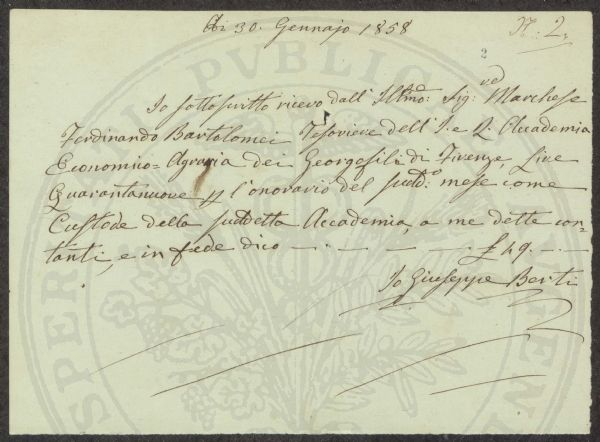 Adi 30. Gennajo 1858
N: 2,,
2
Io sottoscritto ricevo dall' Illmo: Sig: Marchese
Ferdinando Bartolomei Tesoriere dell' I. e R. Accademia
Economico=Agraria dei Georgofili di Firenze, Lire
Quarantanuove p l'onorario del sudd:o mese come
Custode della suddetta Accademia, a me dette con=
tanti, e in fede dico £ 49.
Io Giuseppe Berti